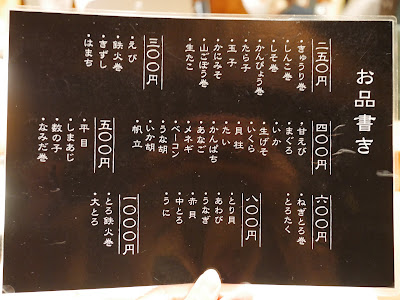 お品書き
二五〇円
・きゅうり巻
・しんこ巻
・しそ巻
・かんぴょう巻
・たら子
・玉子
・かにみそ
・山ごぼう巻
・生たこ
三〇〇円
・えび
・鉄火巻
・きずし
・はまち
四〇〇円
・甘えび
・まぐろ
・いか
・生げそ
・いくら
・貝柱
・たい
・かんぱち
・あなご
・メネギ
・ベーコン
・うな胡
・いか胡
・帆立
五〇〇円
・平目
・しまあじ
・数の子
・なみだ巻
六〇〇円
・ねぎとろ巻
・とろたく
八〇〇円
・とり貝
・あわび
・うなぎ
・赤貝
・中とろ
・うに
一〇〇〇円
・とろ鉄火巻
・大とろ